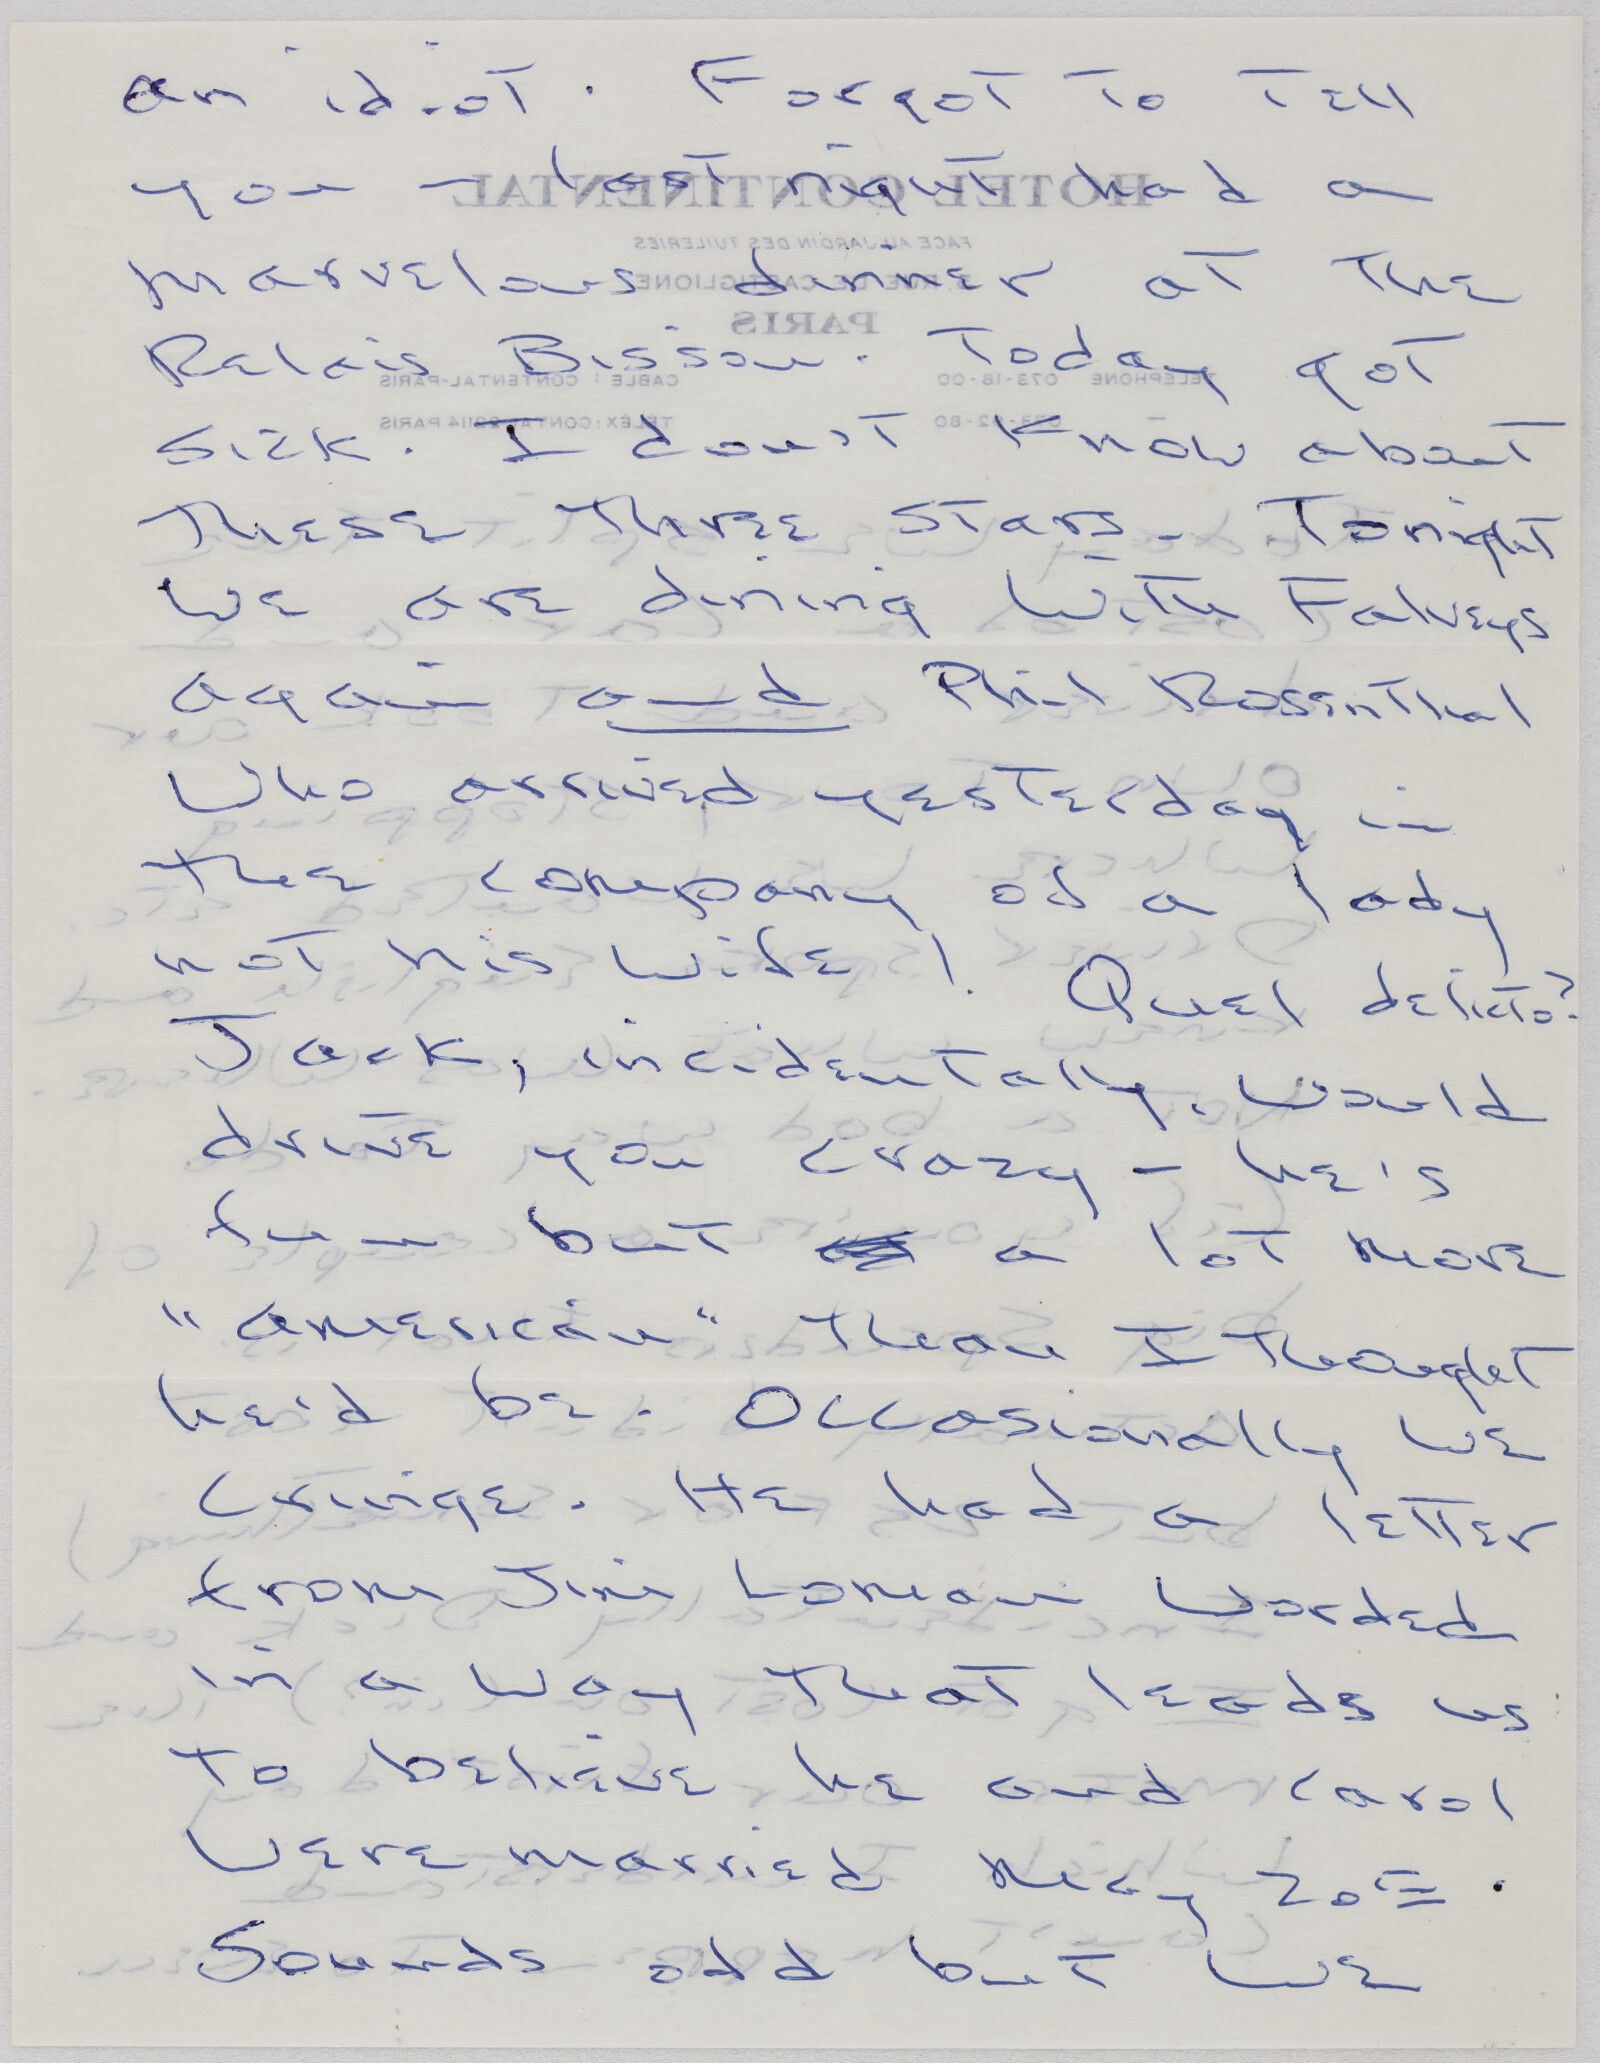 an idiot. Forgot to tell
you - last night had a
marvelous dinner at the
Relais Bisson. Today got
sick. I don't know about
these three stars. Tonight
we are dining with Falveys
again and Phil Rosenthal
who arrived yesterday in
the company of a lady
not his wife! Quel delicto?
Jack, incidentally, would
drive you crazy - he's
fun but a lot more
"american" than I thought
he'd be. Occasionally we
cringe. He had a letter
from Jim Loman worded
in a way that leads us
to believe he and Carol
were married May 20th.
Sounds odd but we
HOTEL CONTINENTAL
FACE AU JARDIN DES TUILERIES
3, RUE DE CASTIGLIONE
PARIS
TELEPHONE 073-18-00
CABLE : CONTENTAL-PARIS
PARIS